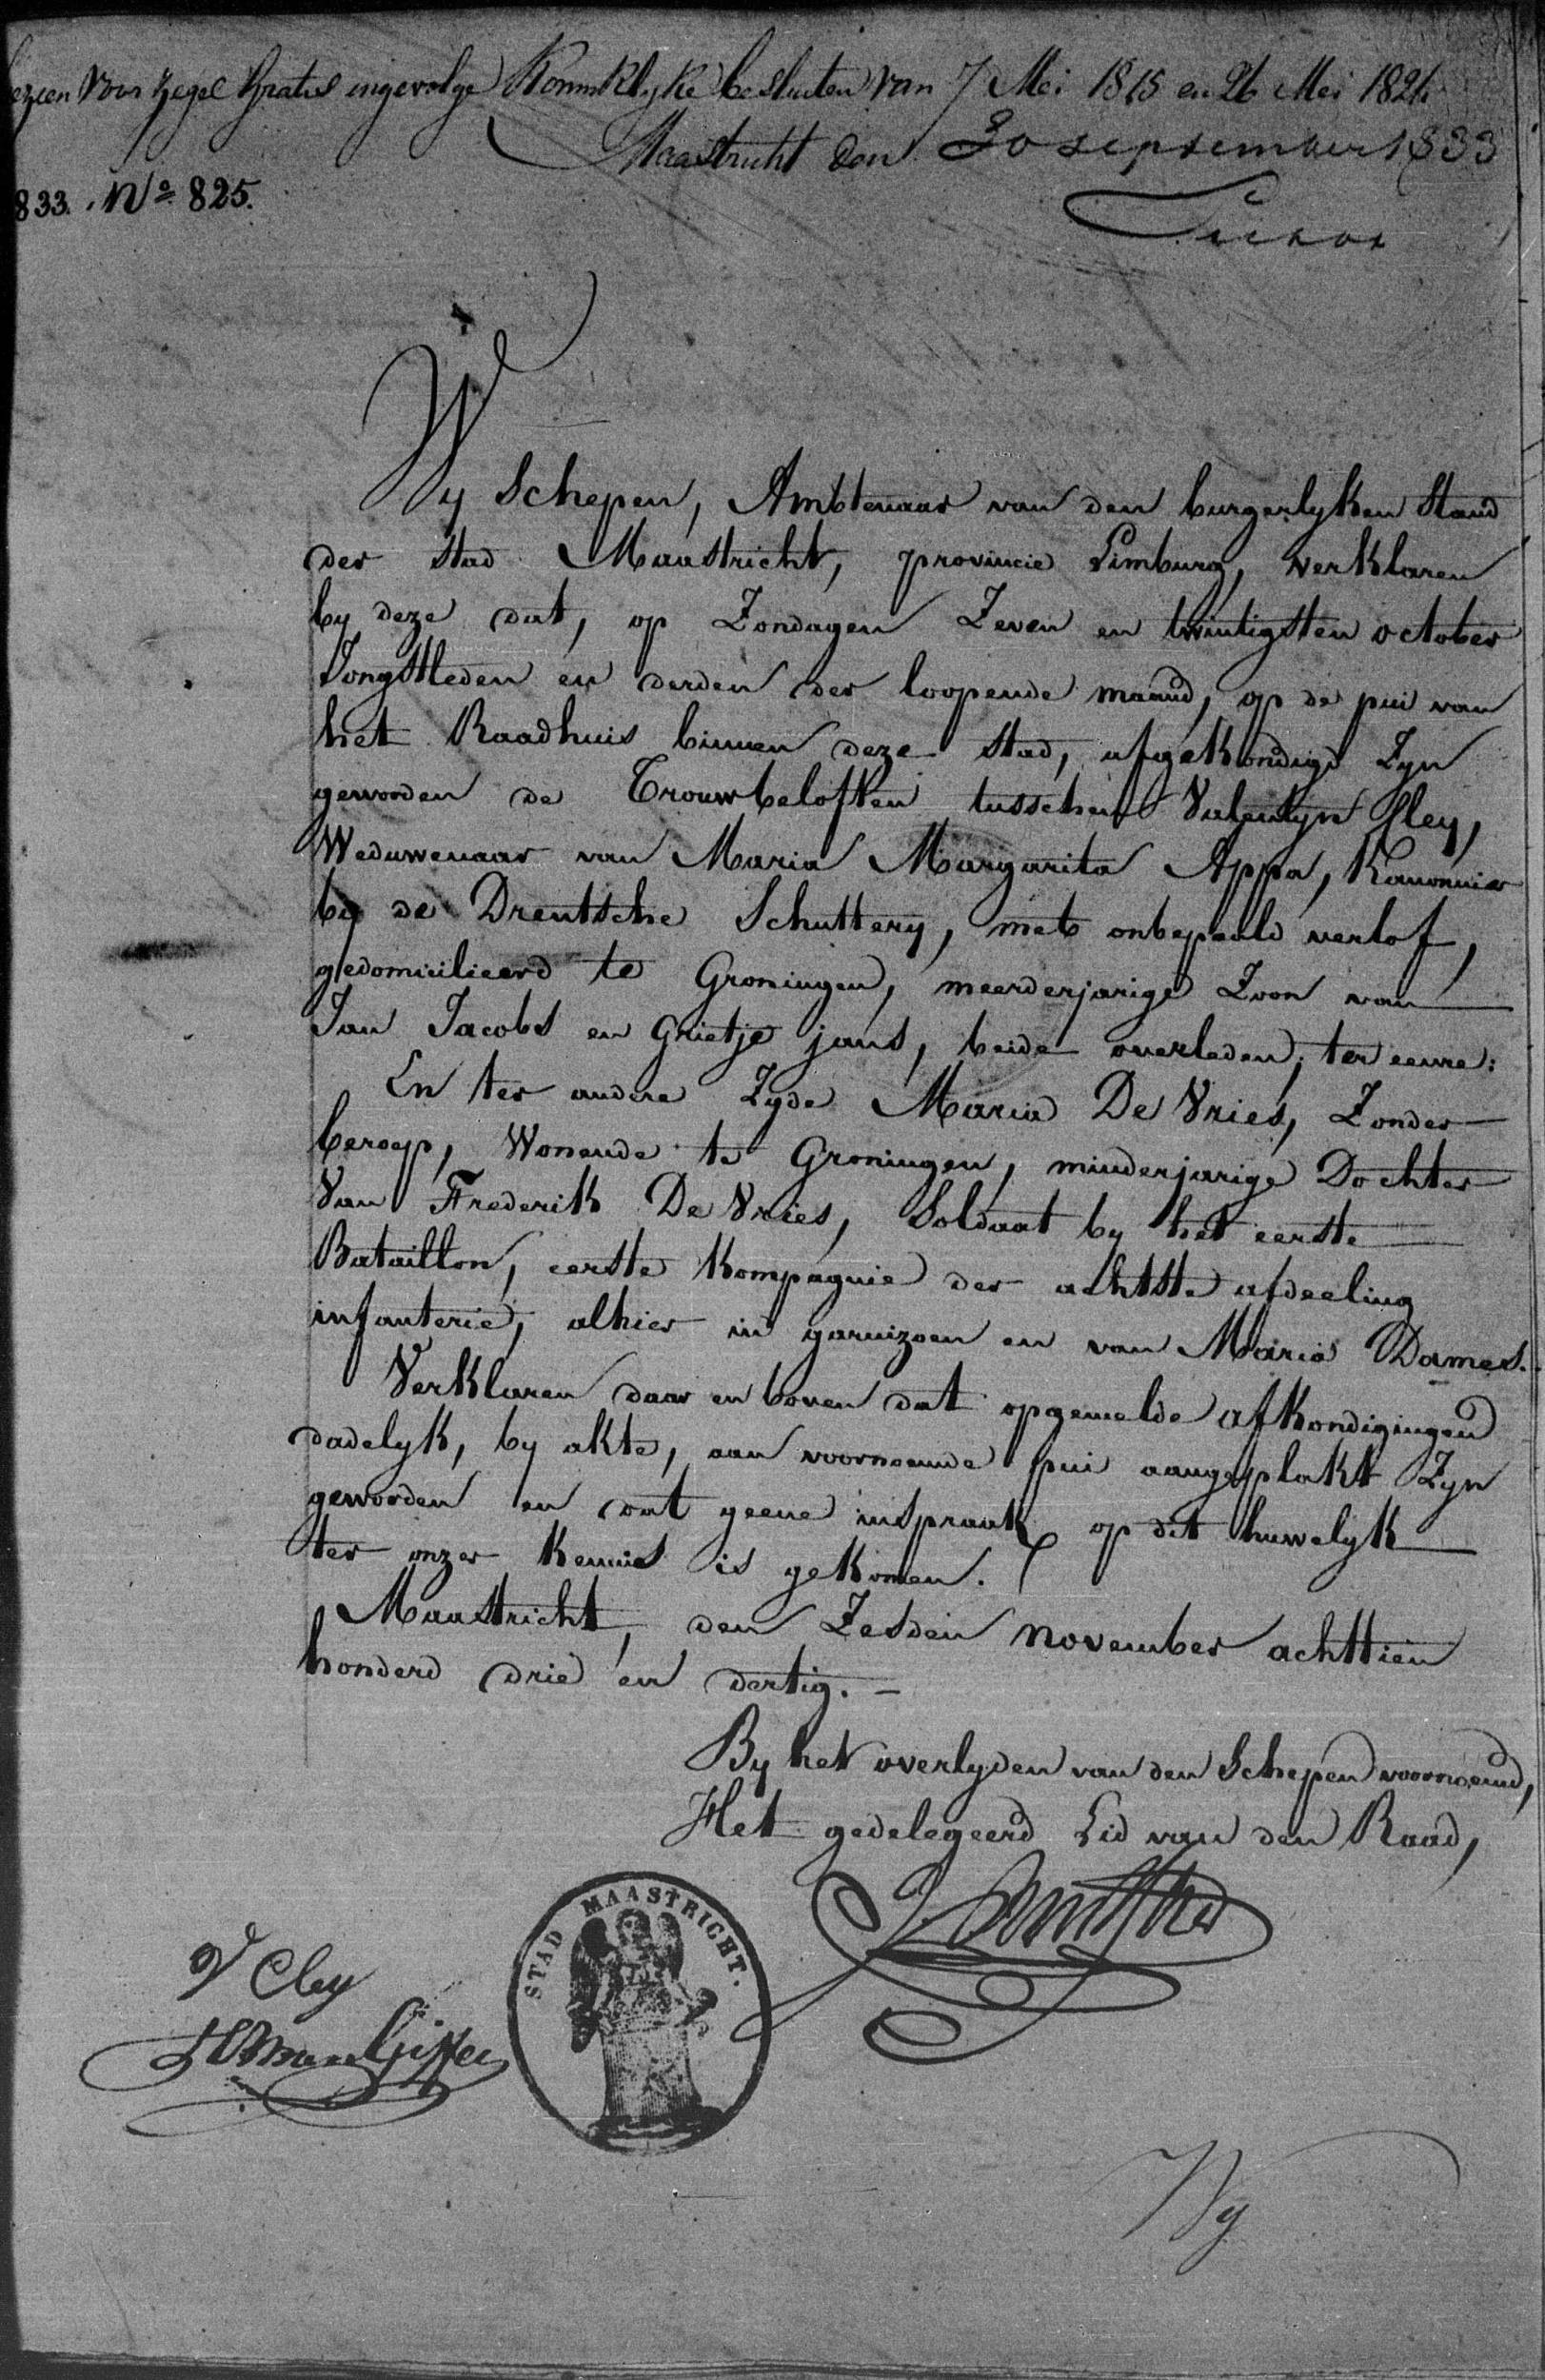 ezien voor zegel Gratis ingevolge Koninklyke besluten van 7 Mei 1815 en 26 Mei 1824
Maastricht den 30 september 1833
833. N° 825.
Wy Schepen, Ambtenaar van den burgerlyken Stand
der stad Maastricht, provincie Limburg, verklaren
by deze dat, op Zondagen Zeven en twintigsten october
Jongstleden en derden der loopende maand, op de pui van
het Raadhuis binnen deze stad, afgekondigd Zyn
geworden de Trouwbeloften tusschen Valentyn Cley,
Weduwenaar van Maria Margarita Appa, Kanonnier
by de Drentsche Schuttery, met onbepaald verlof,
gedomicilieerd te Groningen, meerderjarige Zoon van
Jan Jacobs en Grietje jans, beide overleden, ter eenre:
En ter andere Zyde Maria De Vries, Zonder
beroep, Wonende te Groningen, minderjarige Dochter
Van Frederik De Vries, Soldaat by het eerste
Bataillon, eerste Kompagnie der achtste afdeeling
infanterie, alhier in garnizoen en van Maria Dames.
Verklaren daar en boven dat opgemelde afkondigingen
dadelyk, by akte, aan voornoemde pui aangeplakt Zyn
geworden en dat geene inspraak op dit huwelyk
ter onzer kennis is gekomen.
Maastricht, den Zesden november achttien
honderd drie en dertig. –
By het overlyden van den Schepen voornoemd,
Het gedelegeerd Lid van den Raad,
STAD MAASTRICHT.
V Cley
Wy